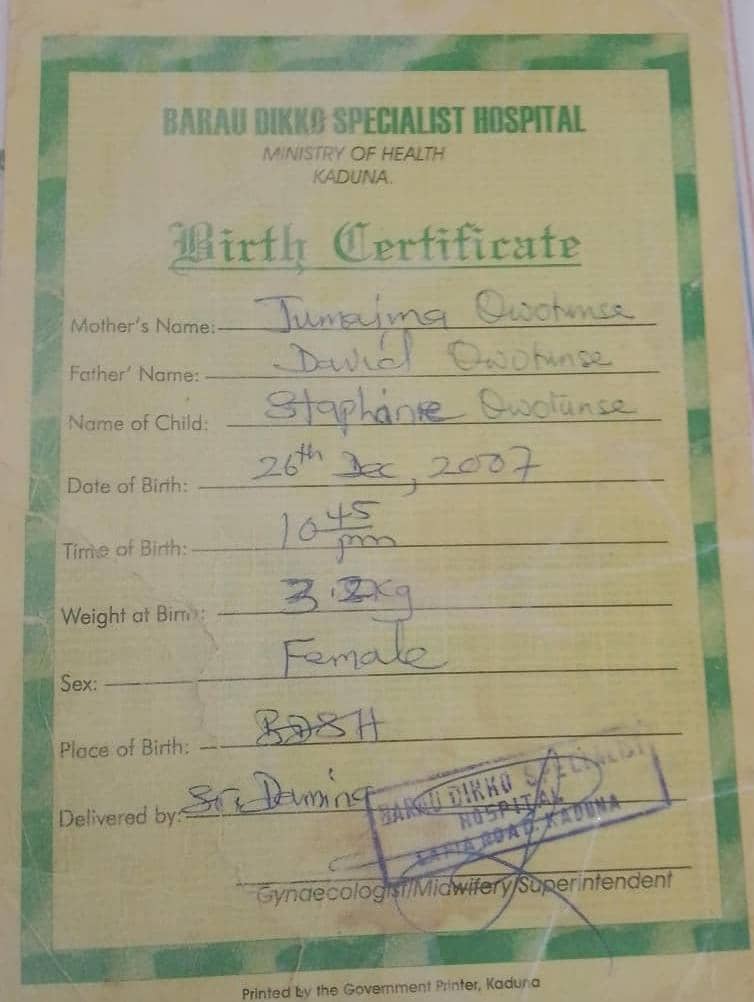 BARAU DIKKO SPECIALIST HOSPITAL
MINISTRY OF HEALTH
KADUNA.
Birth Certificate
Mother's Name: Jumaima Owotunse
Father' Name: David Owotunse
Name of Child: Staphanie Owotunse
Date of Birth: 26th Dec, 2007
Time of Birth: 10 45 pm
Weight at Birth: 3.2kg
Sex: Female
Place of Birth: BDSH
Delivered by: Sr.
BARAU DIKKO SPECIALIST
HOSPITAL
ROAD, KADUNA
Gynaecologist/Midwifery/Superintendent
Printed by the Government Printer, Kaduna